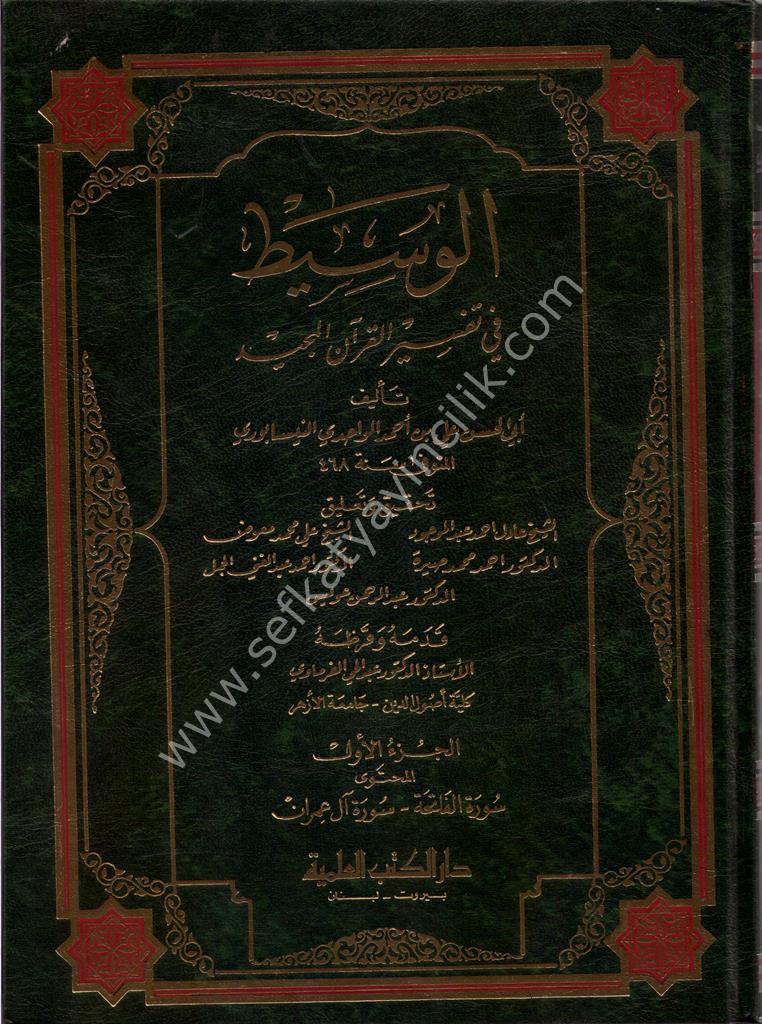 الوسيط
في تفسير القرآن المجيد
تأليف
أبي الحسن علي بن أحمد الواحدي النيسابوري
المتوفى سنة ٤٦٨
تحقيق وتعليق
الشيخ عادل احمد عبد الموجود الشيخ علي محمد معوض
الدكتور احمد محمد صيرة الدكتور احمد عبد الغني الجمل
الدكتور عبد الرحمن عويس
قدمه وقرظه
الأستاذ الدكتور عبد الحي الفرماوي
كلية أصول الدين - جامعة الأزهر
الجزء الأول
المحتوى
سورة الفاتحة - سورة آل عمران
دار الكتب العلمية
بيروت - لبنان
www.sefkatyayincilik.com